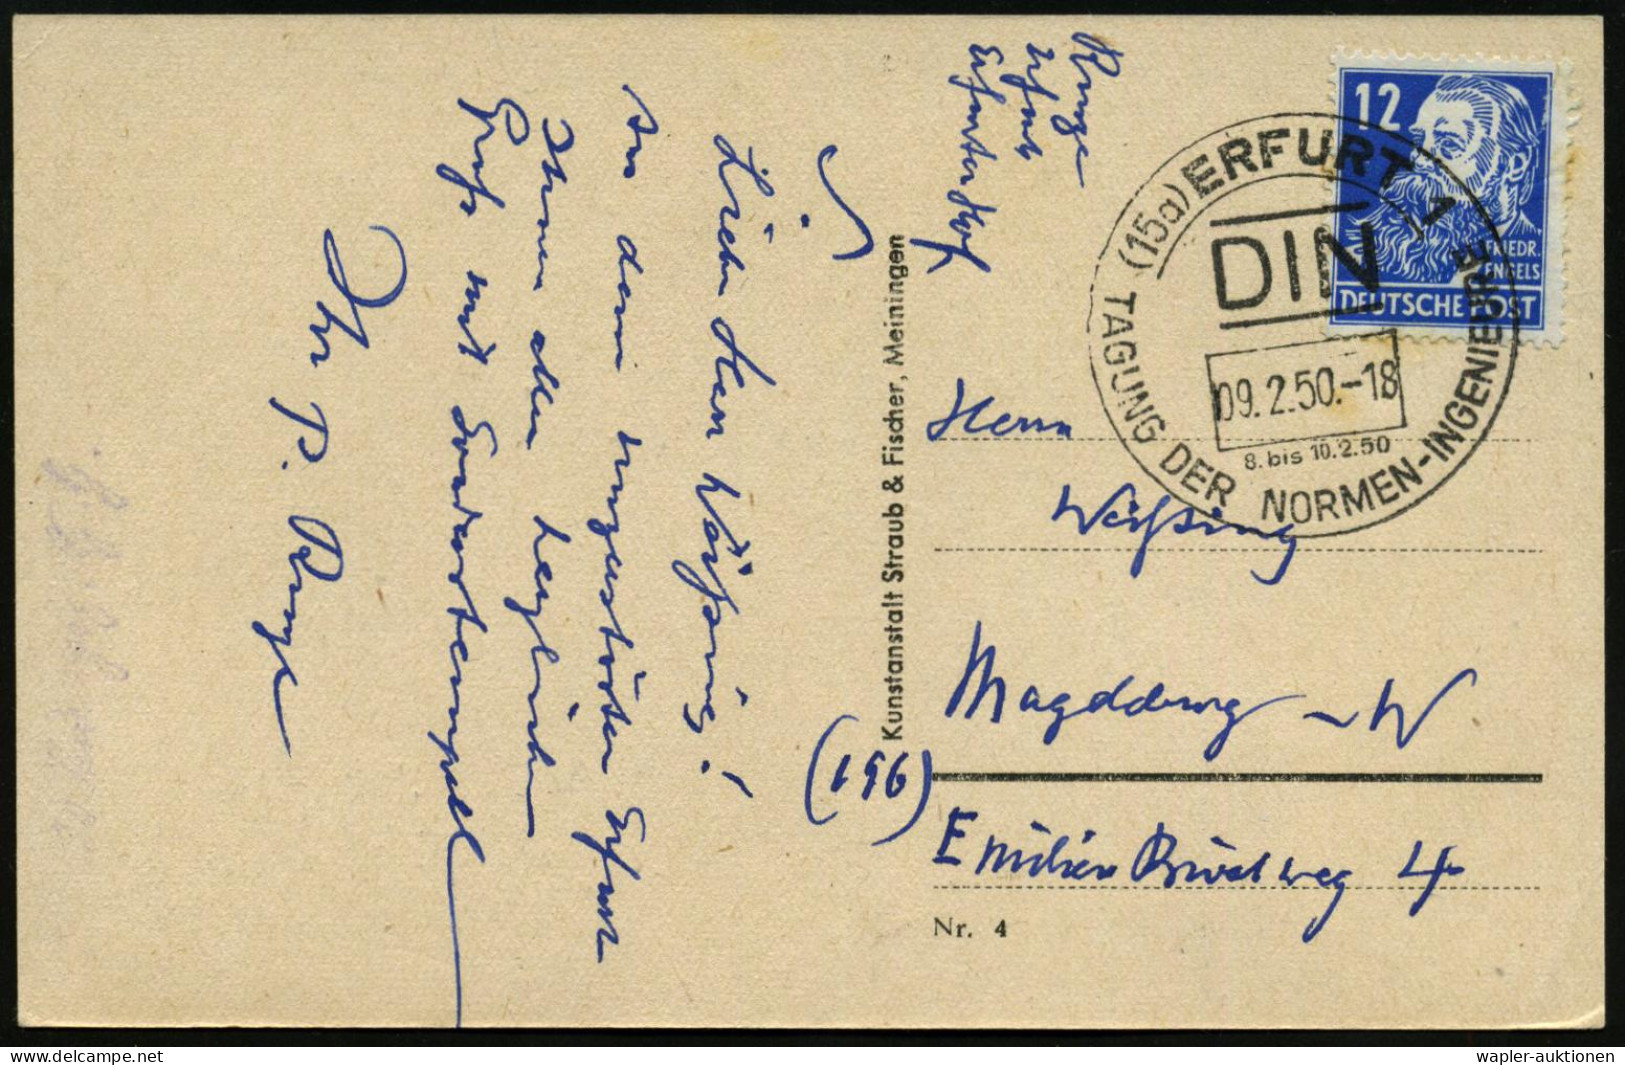 Runge
Erfurt
Erfurter Hof
12
FRIEDR.
ENGELS
DEUTSCHE POST
(15a) ERFURT 1
DIN
09.2.50.-18
8. bis 10.2.50
TAGUNG DER NORMEN-INGENIEURE
Lieber Herr Weißsing!
Aus dem unzerstörten Erfurt
Ihnen allen herzlichen
Gruß mit Sonderstempel
Ihr P. Runge
Kunstanstalt Straub & Fischer, Meiningen
Herrn
Weißsing
Magdeburg - W
(196)
Emilien Privatweg 4
Nr. 4
delcampe.net
wapler-auktionen